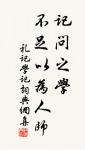 記問之學
不足以為人師
禮記學記詞典網集